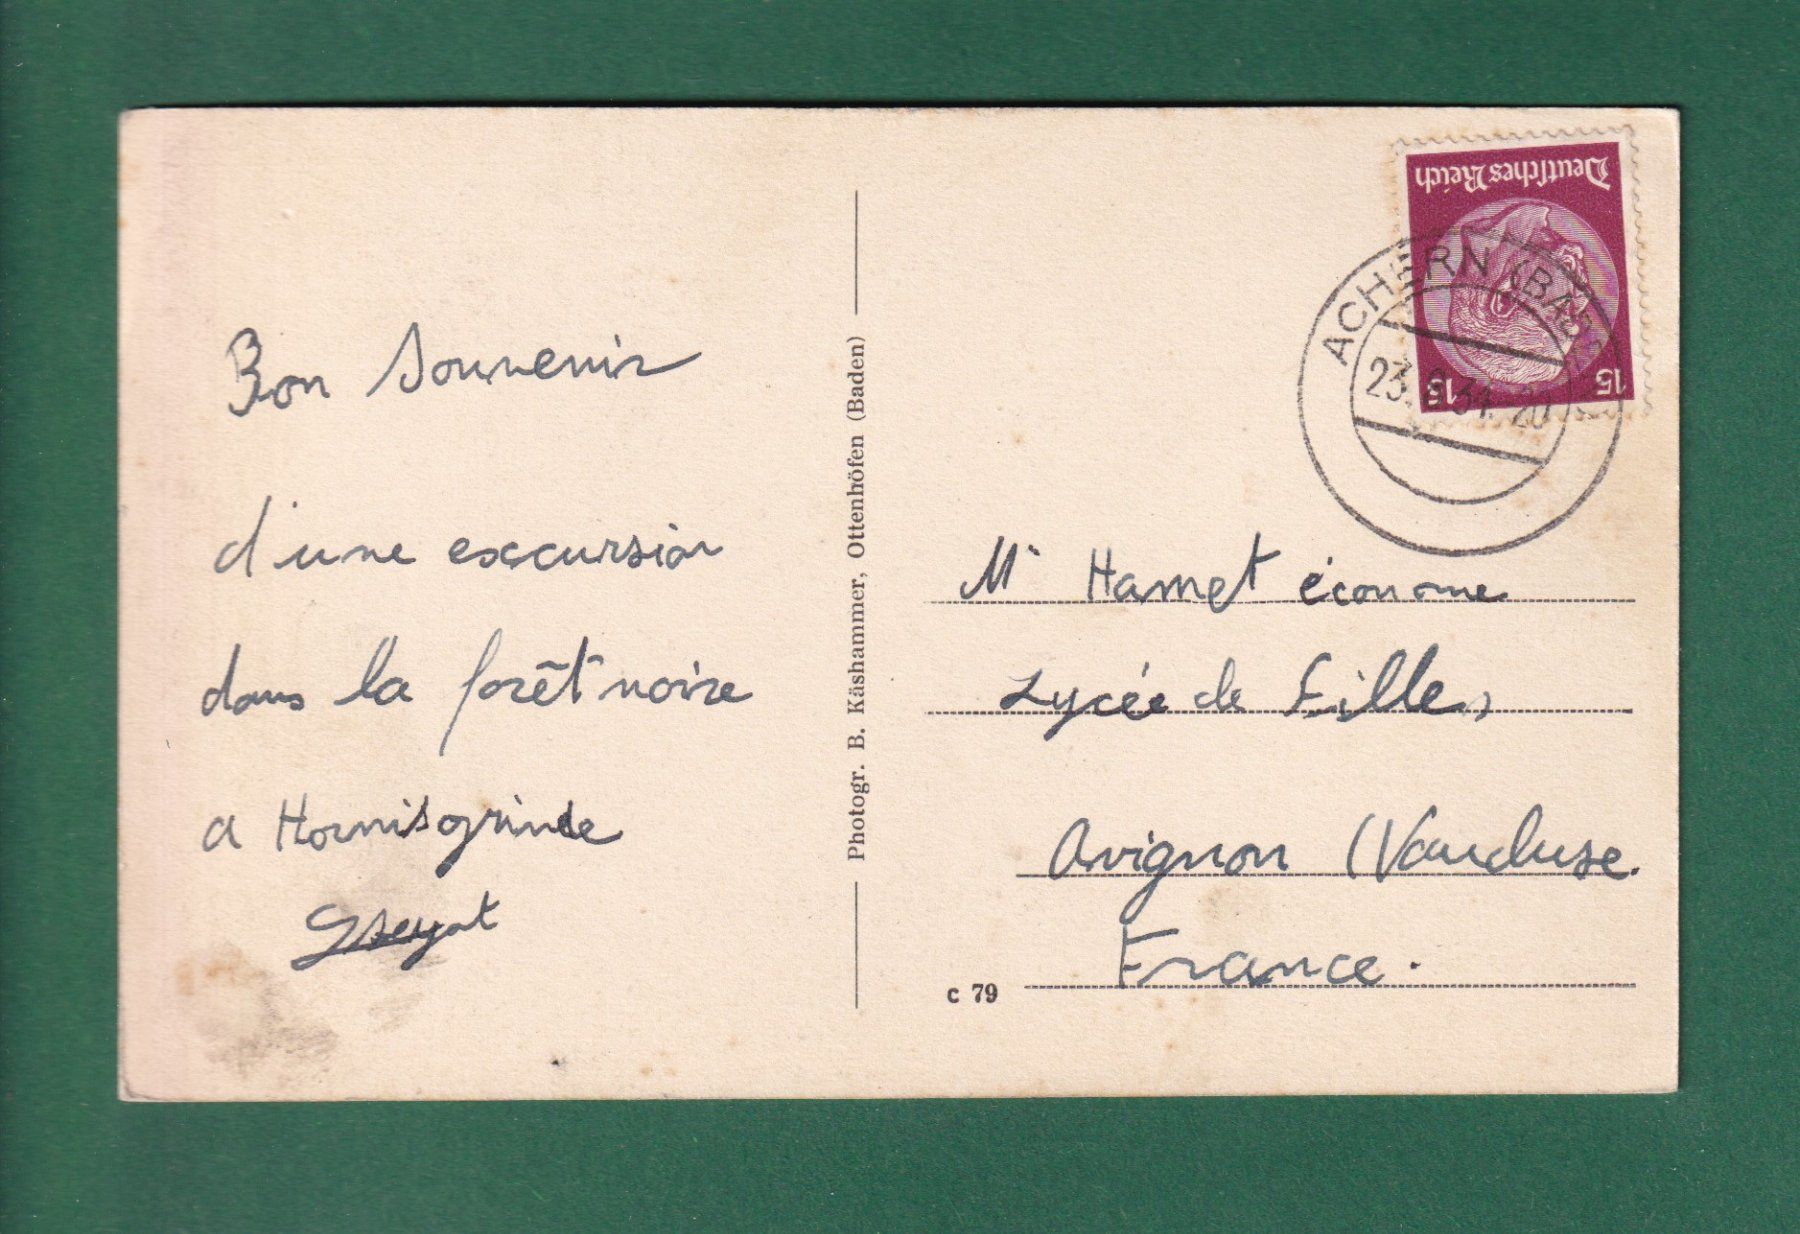 Bon Souvenir
d'une excursion
dans la forêt noire
a Hornisgrinde
Photogr. B. Käshammer, Ottenhöfen (Baden)
Deutsches Reich
15 15
ACHERN (BADEN)
23.
20
Mr Hamet économe
Lycée de Filles
Avignon (Vaucluse.
France.
c 79